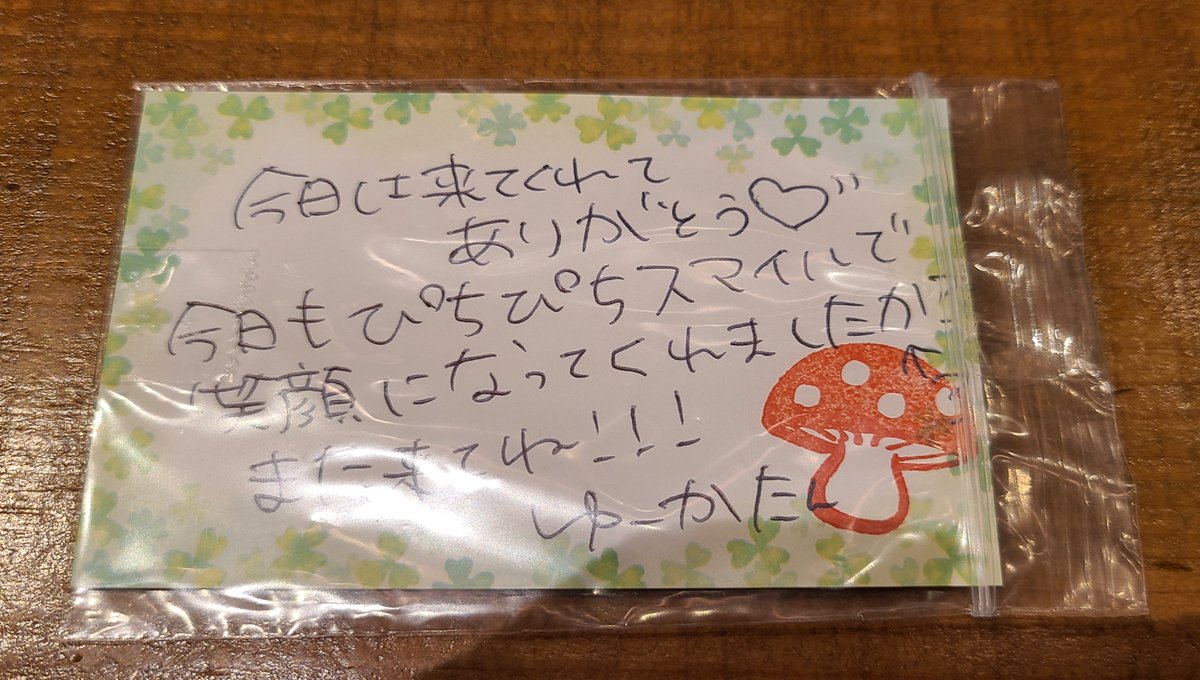 今日は来てくれて
ありがとう♡"
今日もぴちぴちスマイルで
笑顔になってくれましたか?
また来てね〜!!!
ゆーかたん